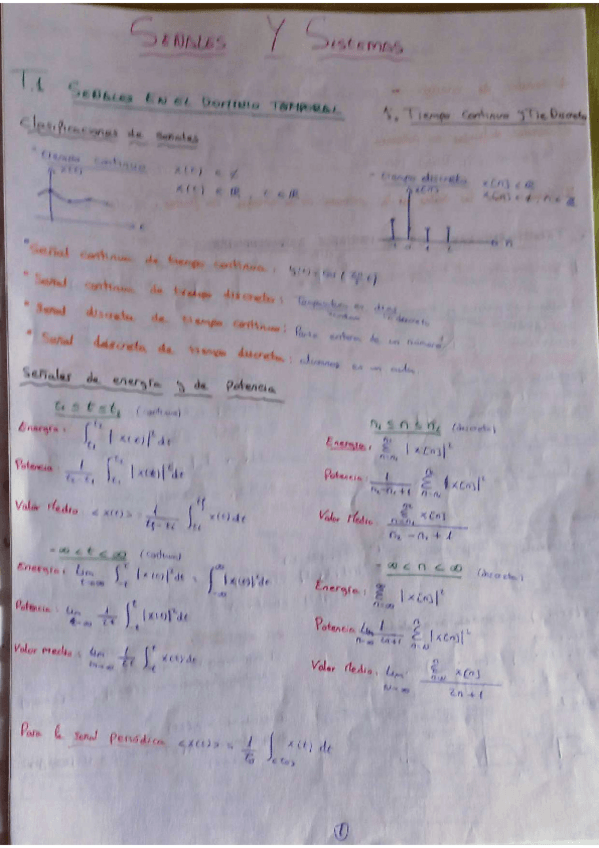 SEÑALES Y SISTEMAS
T.1 SEÑALES EN EL DOMINIO TEMPORAL
1. Tiempo Continuo y T. Discreto
Clasificaciones de señales
Tiempo continuo: x(t)
x(t) ∈ ℝ t ∈ ℝ
x(t)
t
Tiempo discreto x[n] ∈
x[n]
n
* Señal continua de tiempo continuo:
* Señal continua de tiempo discreto:
* Señal discreta de tiempo continuo: Parte entera de un número
* Señal discreta de tiempo discreto: alumnos en un aula
Señales de energía y de potencia
t₁ ≤ t ≤ t₂ (continuo)
Energía: ∫ |x(t)|² dt
Potencia: 1/(t₂ - t₁) ∫ |x(t)|² dt
Valor Medio: <x(t)> = ∫ x(t) dt
n₁ ≤ n ≤ n₂ (discreta)
Energía: Σ |x[n]|²
Potencia: 1/(n₂ - n₁ + 1) Σ |x[n]|²
Valor Medio: Σ x[n] / (n₂ - n₁ + 1)
-∞ < t < ∞ (continuo)
Energía: lim ∫ |x(t)|² dt = ∫ |x(t)|² dt
Potencia: lim ∫ |x(t)|² dt
Valor medio: lim ∫ x(t) dt
-∞ < n < ∞ (discreta)
Energía: Σ |x[n]|²
Potencia: lim Σ |x[n]|²
Valor Medio: lim Σ x[n] / (2n + 1)
Para la señal periódica <x(t)> = ∫ x(t) dt
1